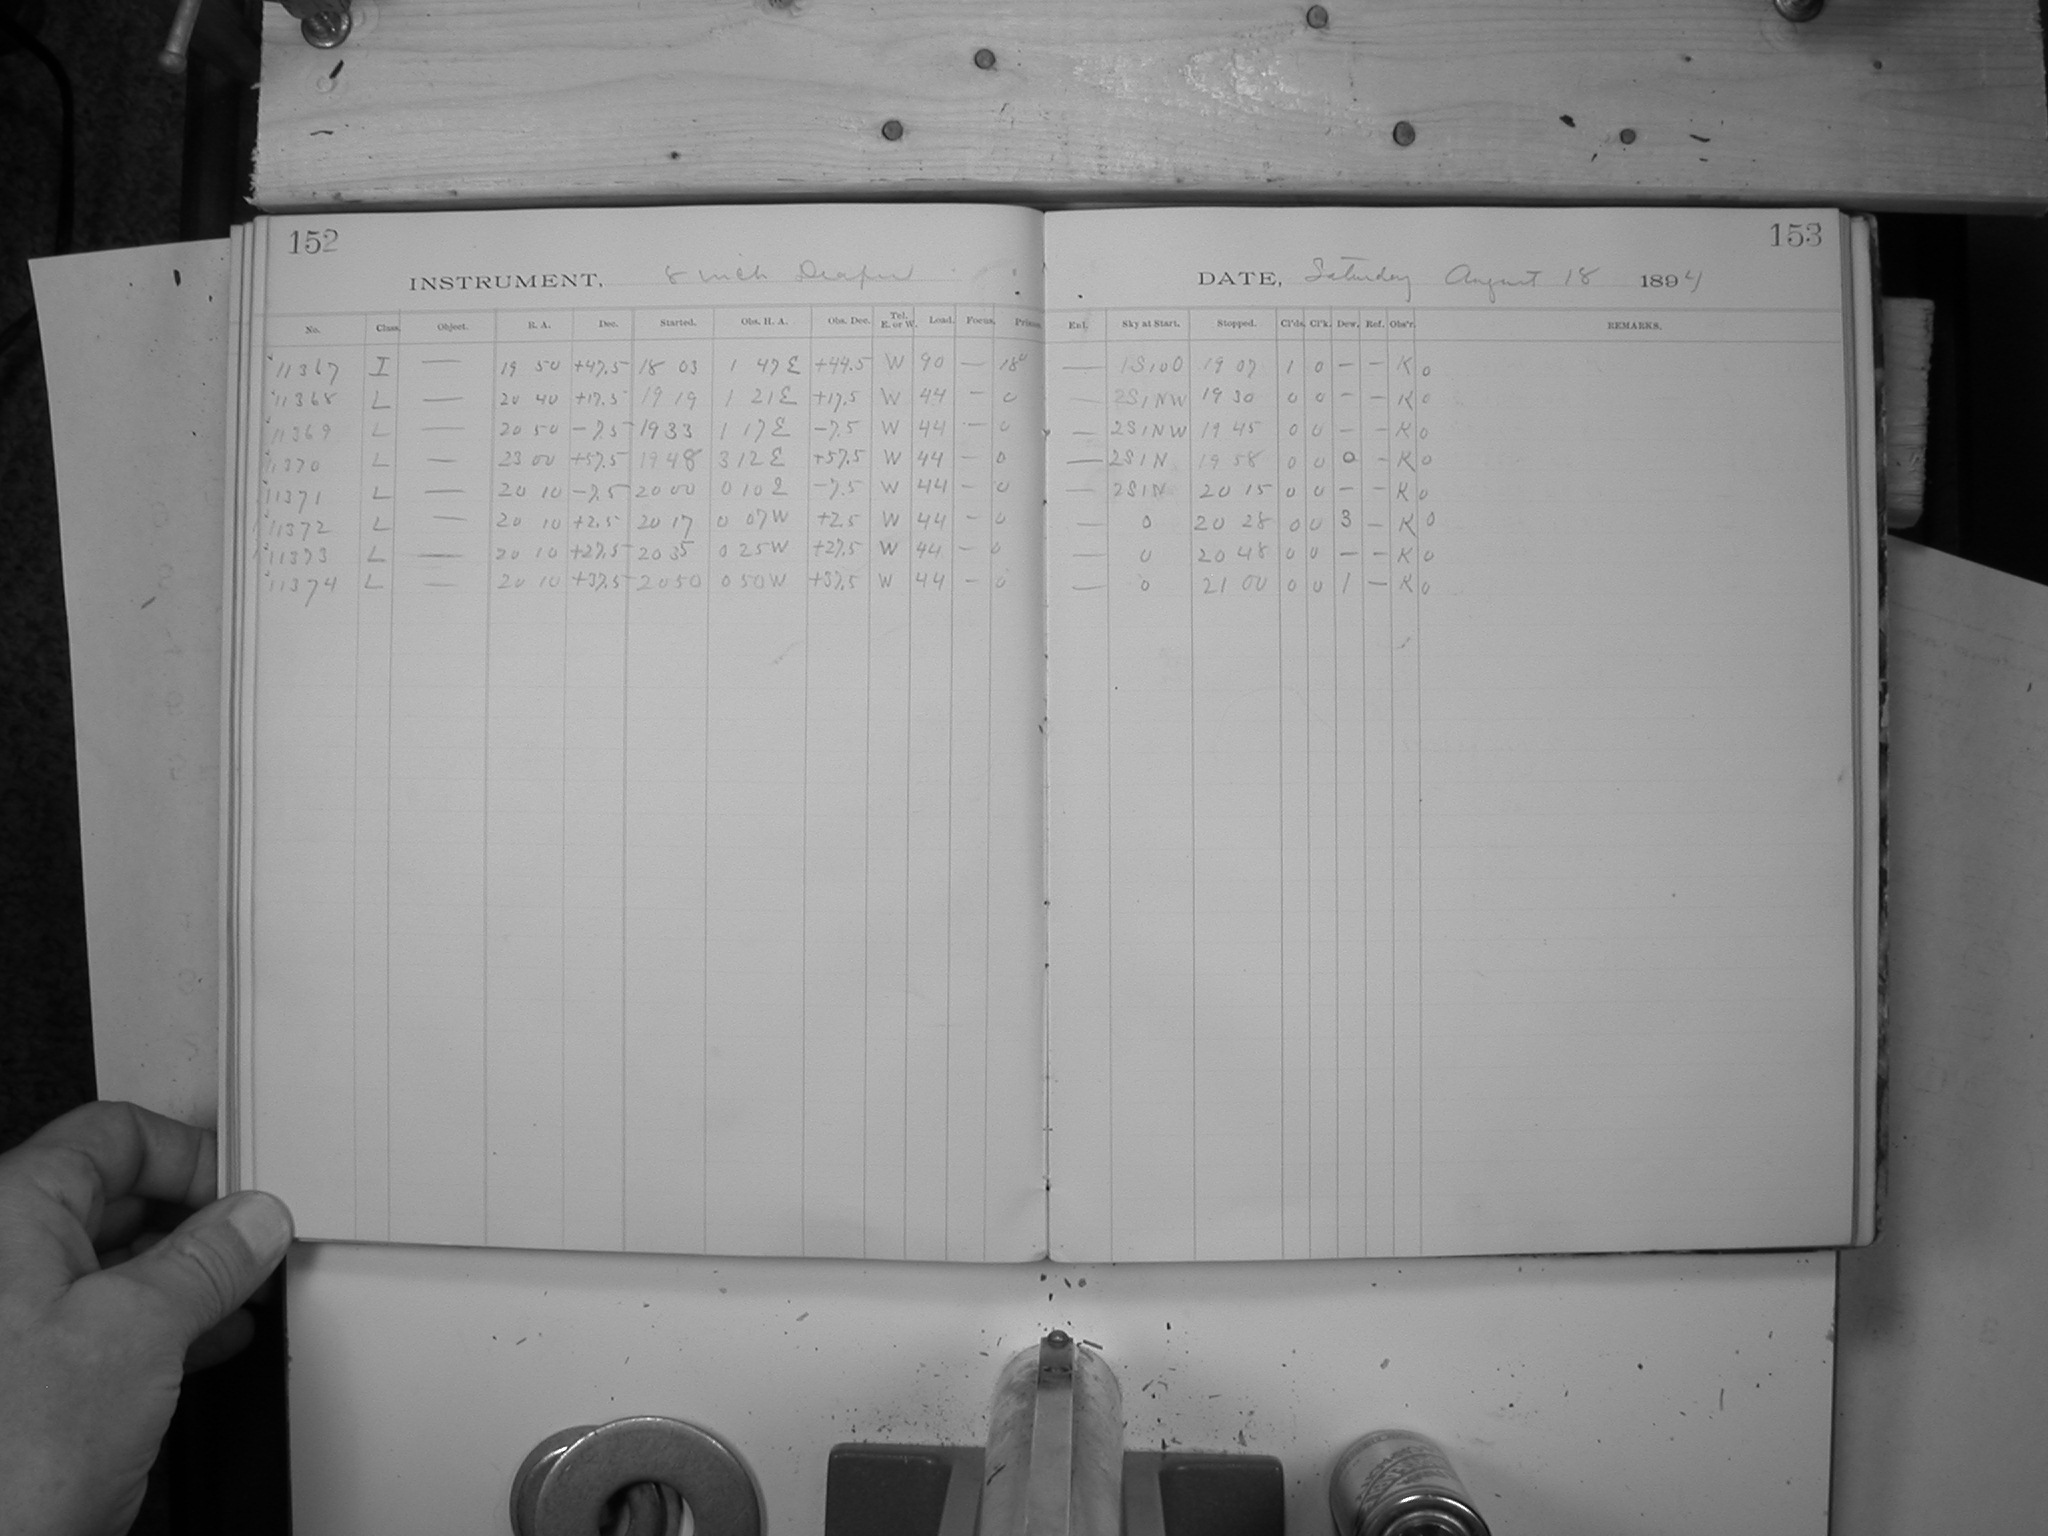 152
INSTRUMENT, 8 inch Draper
No. Class. Object. R. A. Dec. Started. Obs. H. A. Obs. Dec. Tel. E. or W. Lead. Focus. Prisms
11367 I — 19 50 +47.5 18 03 1 47 E +44.5 W 90 — 18 0
11368 L — 20 40 +17.5 19 19 1 21 E +17.5 W 44 — 0
11369 L — 20 50 -7.5 19 33 1 17 E -7.5 W 44 — 0
11370 L — 23 00 +57.5 19 48 3 12 E +57.5 W 44 — 0
11371 L — 20 10 -7.5 20 00 0 10 E -7.5 W 44 — 0
11372 L — 20 10 +2.5 20 17 0 07 W +2.5 W 44 — 0
11373 L — 20 10 +27.5 20 35 0 25 W +27.5 W 44 — 0
11374 L — 20 10 +37.5 20 50 0 50 W +37.5 W 44 — 0
153
DATE, Saturday August 18 1894
Enl. Sky at Start. Stopped. Cl'ds. Cl'k. Dew. Ref. Obs'r. REMARKS.
— 1S100 19 07 1 0 — — K 0
— 2S1NW 19 30 0 0 — — K 0
— 2S1NW 19 45 0 0 — — K 0
— 2S1N 19 58 0 0 0 — K 0
— 2S1N 20 15 0 0 — — K 0
— 0 20 28 0 0 3 — K 0
— 0 20 48 0 0 — — K 0
— 0 21 00 0 0 1 — K 0